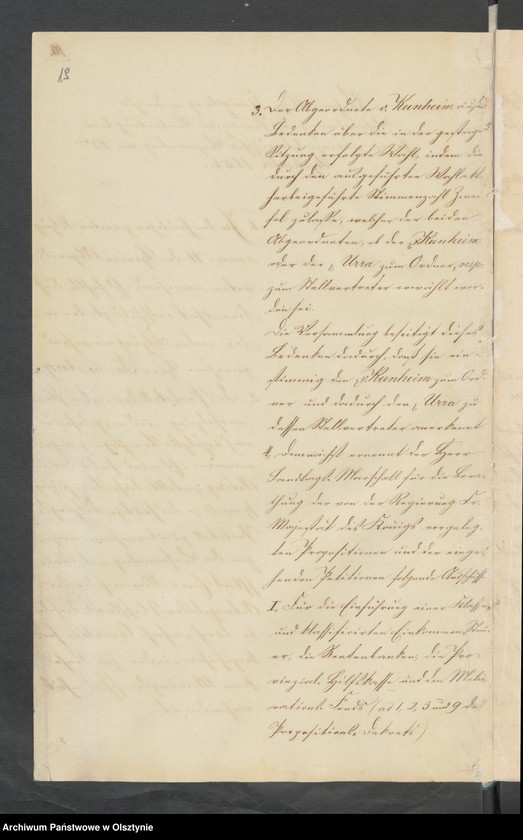 19
3. Der Abgeordnete v. Kunheim äußert
Bedenken über die in der gestrigen
Sitzung erfolgte Wahl, indem die
durch den ausgeführten Wahlakt
herbeigeführte Stimmenzahl Zwei-
fel zulasse, welcher der beiden
Abgeordneten, ob der v. Kunheim
oder der p Urra zum Ordner, resp.
zum Stellvertreter erwählt wor-
den sei.
Die Versammlung beseitigt dieses
Bedenken dadurch, daß sie ein-
stimmig den v. Kunheim zum Ord-
ner und dadurch den p Urra zu
dessen Stellvertreter anerkennt.
4. Demnächst ernennt der Herr
Landtags Marschall für die Bera-
thung der von der Regierung Sr.
Majestät des Königs vorgeleg-
ten Propositionen und der einge-
henden Petitionen folgende Ausschüsse
I. Für die Einführung einer Klassen
und klassificirten Einkommen Steu-
er, die Rentenbanken, die Pro-
vinzial-Hilfskasse und den Melio-
rations-Fonds (ad 1, 2, 3 und 9 des
Propositions-Dekrets)
Archiwum Państwowe w Olsztynie